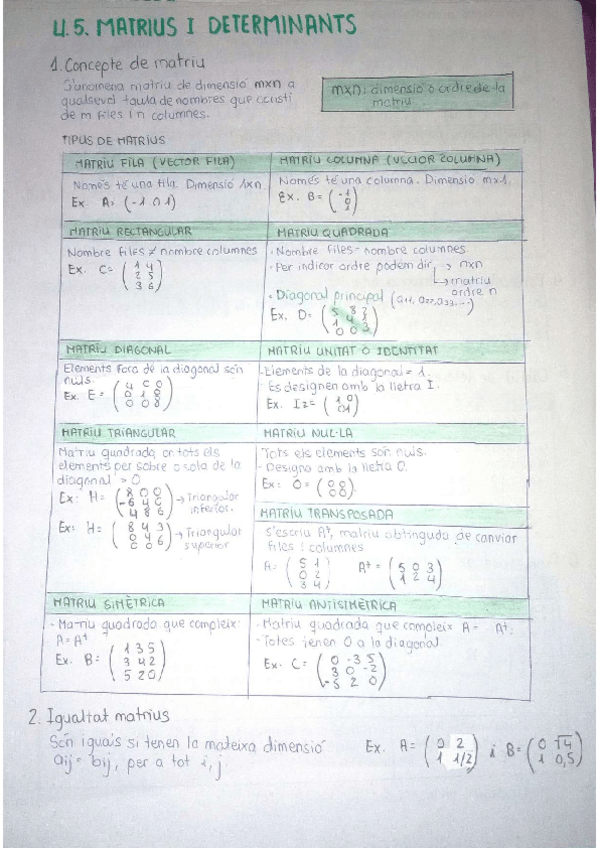 U.5. MATRIUS I DETERMINANTS
1. Concepte de matriu
S'anomena matriu de dimensió mxn a
qualsevol taula de nombres que consti
de m files i n columnes.
mxn: dimensió o ordre de la
matriu.
TIPUS DE MATRIUS
MATRIU FILA (VECTOR FILA)
Només té una fila. Dimensió 1xn
Ex. A= (-1 0 1)
MATRIU COLUMNA (VECTOR COLUMNA)
Només té una columna. Dimensió mx1.
Ex. B= (-1
0
1)
MATRIU RECTANGULAR
Nombre files ≠ nombre columnes
Ex. C= (1 4
2 5
3 6)
MATRIU QUADRADA
· Nombre files = nombre columnes.
· Per indicar ordre podem dir → nxn
→ matriu
ordre n
· Diagonal principal (a11, a22, a33...)
Ex. D= (5 8 7
1 4 3
1 0 3)
MATRIU DIAGONAL
Elements fora de la diagonal són
nuls.
Ex. E = (4 0 0
0 1 0
0 0 8)
MATRIU UNITAT O IDENTITAT
· Elements de la diagonal = 1.
· Es designen amb la lletra I.
Ex. I2= (1 0
0 1)
MATRIU TRIANGULAR
Matriu quadrada on tots els
elements per sobre o sota de la
diagonal = 0
Ex: H= (8 0 0
-6 4 0
4 8 6) → Triangular
inferior.
Ex: H= (8 4 3
0 4 6
0 0 6) → Triangular
superior
MATRIU NUL·LA
· Tots els elements són nuls.
· Designa amb la lletra O.
Ex: O= (0 0
0 0)
MATRIU TRANSPOSADA
S'escriu At, matriu obtinguda de canviar
files i columnes
A= (5 1
0 2
3 4) At = (5 0 3
1 2 4)
MATRIU SIMÈTRICA
· Matriu quadrada que compleix:
A= At
Ex. B= (1 3 5
3 4 2
5 2 0)
MATRIU ANTISIMÈTRICA
· Matriu quadrada que compleix A= -At.
· Totes tenen 0 a la diagonal.
Ex. C= (0 -3 5
3 0 -2
-5 2 0)
2. Igualtat matrius
Són iguals si tenen la mateixa dimensió
aij = bij, per a tot i, j.
Ex. A= (0 2
1 1/2) i B= (0 √4
1 0,5)